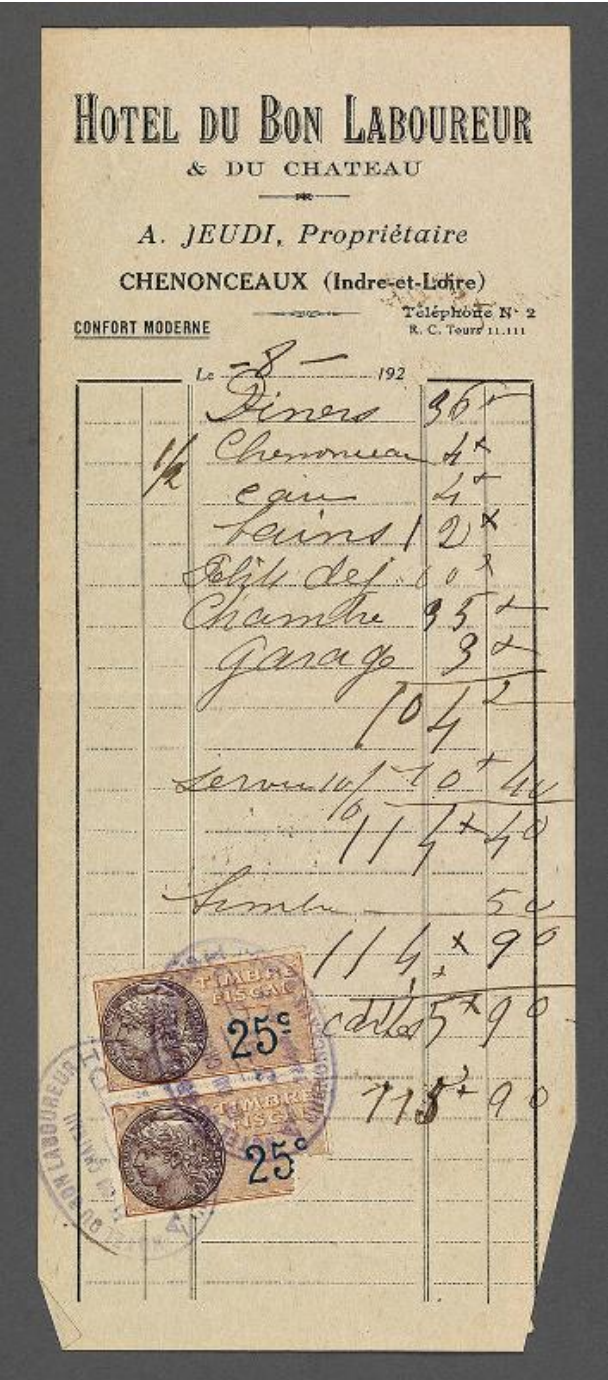 HOTEL DU BON LABOUREUR
& DU CHATEAU
A. JEUDI, Propriétaire
CHENONCEAUX (Indre-et-Loire)
Téléphone N° 2
CONFORT MODERNE
R. C. Tours 11.111
Le -8- 192
Diners 36 x
1/2 Chenonceau 4 x
eau 4 x
bains 12 x
Petit dej. 10 x
Chambre 35 x
garage 3 x
104
service 10/0 10 x 40
114 x 40
timbre 50
114 x 90
cartes 90
115 x 90
TIMBRE
FISCAL
25c
TIMBRE
FISCAL
25c
DU BON LABOUREUR